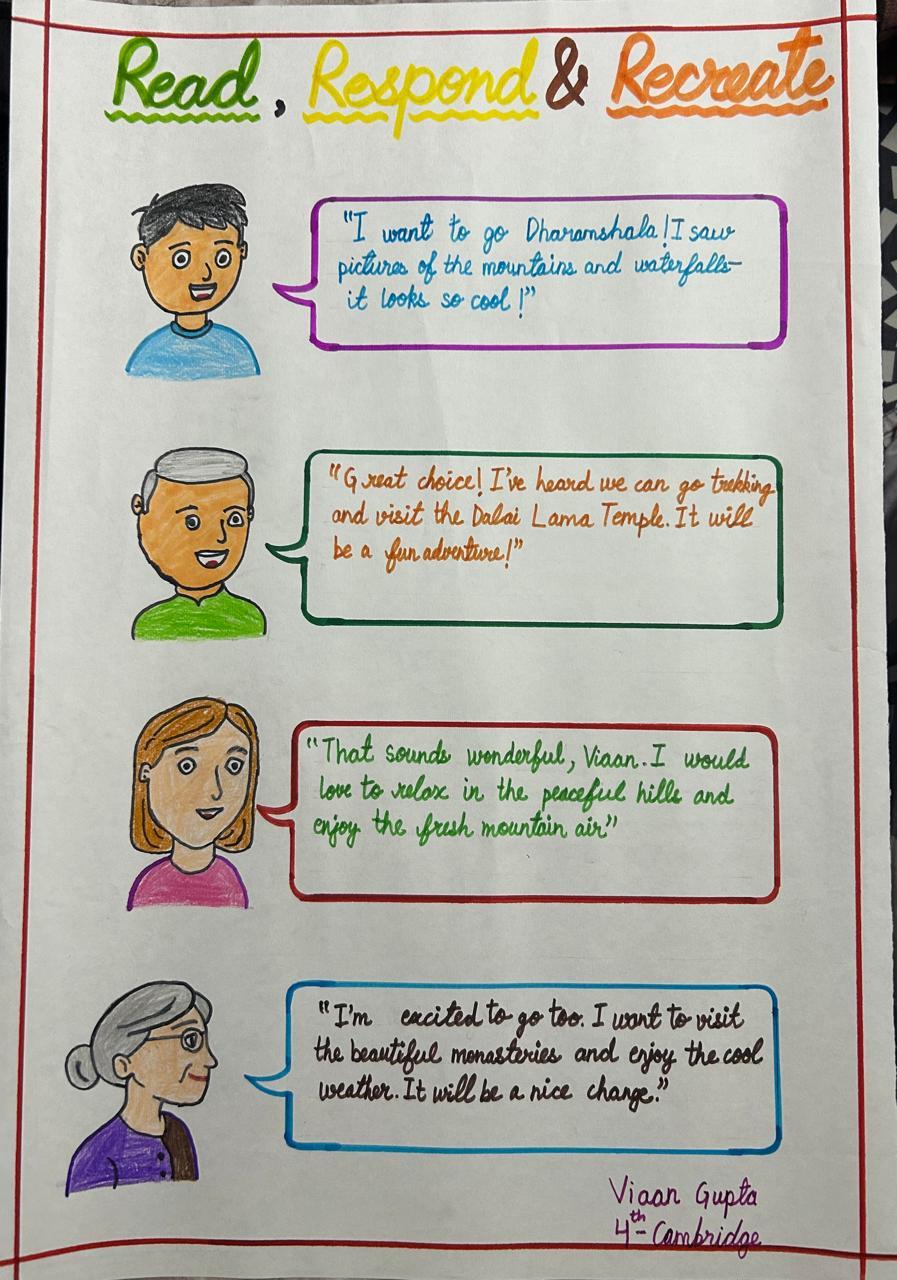 Read, Respond & Recreate
"I want to go Dharamshala! I saw
pictures of the mountains and waterfalls-
it looks so cool!"
"Great choice! I've heard we can go trekking
and visit the Dalai Lama Temple. It will
be a fun adventure!"
"That sounds wonderful, Viaan. I would
love to relax in the peaceful hills and
enjoy the fresh mountain air"
"I'm excited to go too. I want to visit
the beautiful monasteries and enjoy the cool
weather. It will be a nice change."
Viaan Gupta
4th- Cambridge